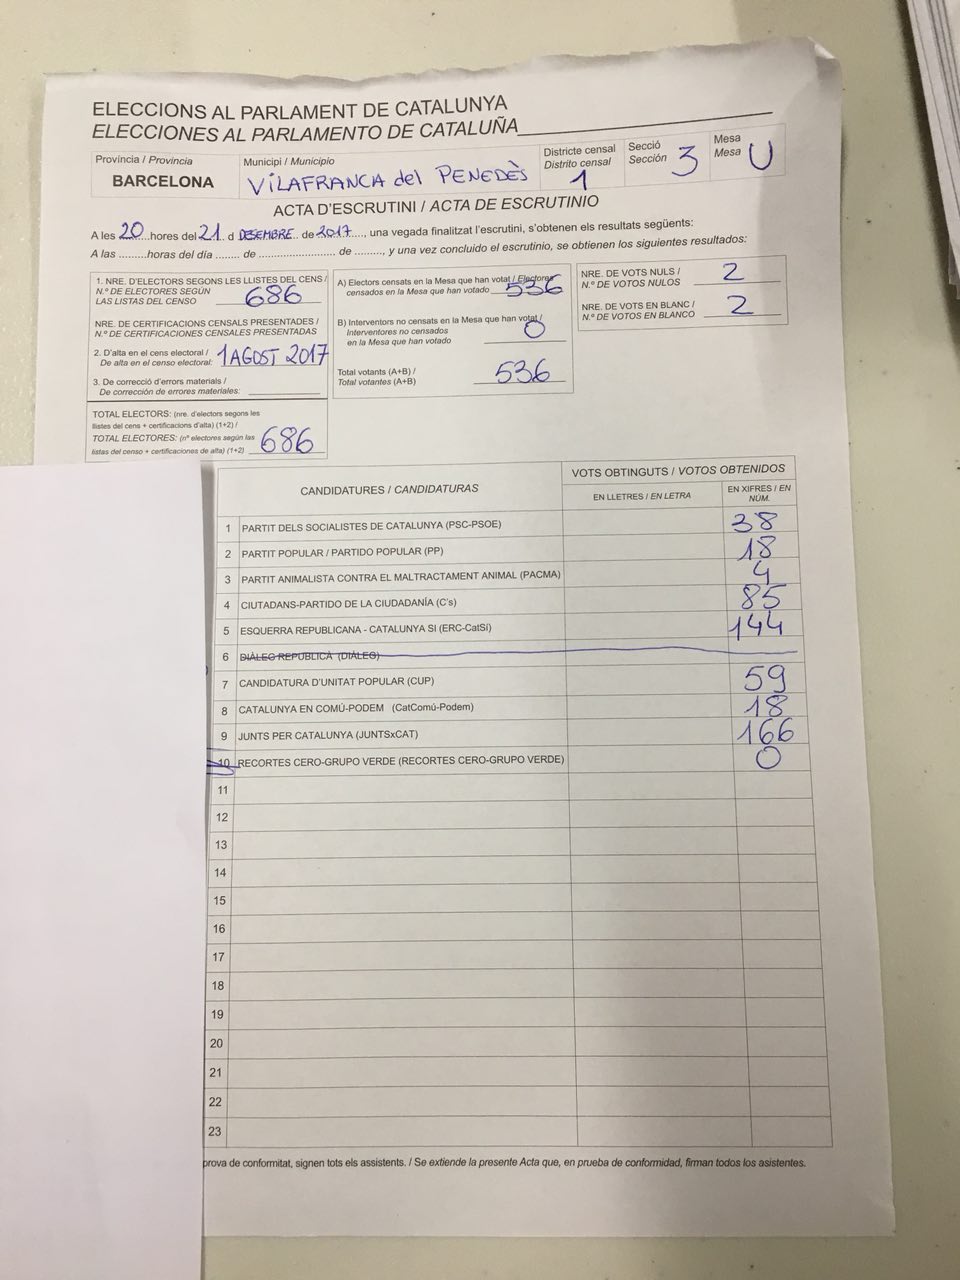 ELECCIONS AL PARLAMENT DE CATALUNYA
ELECCIONES AL PARLAMENTO DE CATALUÑA
Província / Provincia
BARCELONA
Municipi / Municipio
VILAFRANCA del PENEDÈS
Districte censal
Distrito censal
1
Secció
Sección
3
Mesa
Mesa
U
ACTA D'ESCRUTINI / ACTA DE ESCRUTINIO
A les 20 hores del 21 d DESEMBRE de 2017, una vegada finalitzat l'escrutini, s'obtenen els resultats següents:
A las .........horas del día ...... de ........................... de ........., y una vez concluido el escrutinio, se obtienen los siguientes resultados:
1. NRE. D'ELECTORS SEGONS LES LLISTES DEL CENS /
N.º DE ELECTORES SEGÚN
LAS LISTAS DEL CENSO 686
NRE. DE CERTIFICACIONS CENSALS PRESENTADES /
N.º DE CERTIFICACIONES CENSALES PRESENTADAS
2. D'alta en el cens electoral /
De alta en el censo electoral: 1 AGOST 2017
3. De correcció d'errors materials /
De corrección de errores materiales:
TOTAL ELECTORS: (nre. d'electors segons les
llistes del cens + certificacions d'alta) (1+2) /
TOTAL ELECTORES: (nº electores según las
listas del censo + certificaciones de alta) (1+2) 686
A) Electors censats en la Mesa que han votat / Electores
censados en la Mesa que han votado 536
B) Interventors no censats en la Mesa que han votat /
Interventores no censados
en la Mesa que han votado 0
Total votants (A+B) /
Total votantes (A+B) 536
NRE. DE VOTS NULS /
N.º DE VOTOS NULOS 2
NRE. DE VOTS EN BLANC /
N.º DE VOTOS EN BLANCO 2
CANDIDATURES / CANDIDATURAS
VOTS OBTINGUTS / VOTOS OBTENIDOS
EN LLETRES / EN LETRA
EN XIFRES / EN
NÚM.
1 PARTIT DELS SOCIALISTES DE CATALUNYA (PSC-PSOE) 38
2 PARTIT POPULAR / PARTIDO POPULAR (PP) 18
3 PARTIT ANIMALISTA CONTRA EL MALTRACTAMENT ANIMAL (PACMA) 4
4 CIUTADANS-PARTIDO DE LA CIUDADANÍA (C's) 85
5 ESQUERRA REPUBLICANA - CATALUNYA SI (ERC-CatSí) 144
6 DIÀLEG REPUBLICÀ (DIÀLEG)
7 CANDIDATURA D'UNITAT POPULAR (CUP) 59
8 CATALUNYA EN COMÚ-PODEM (CatComú-Podem) 18
9 JUNTS PER CATALUNYA (JUNTSxCAT) 166
10 RECORTES CERO-GRUPO VERDE (RECORTES CERO-GRUPO VERDE) 0
11
12
13
14
15
16
17
18
19
20
21
22
23
prova de conformitat, signen tots els assistents. / Se extiende la presente Acta que, en prueba de conformidad, firman todos los asistentes.